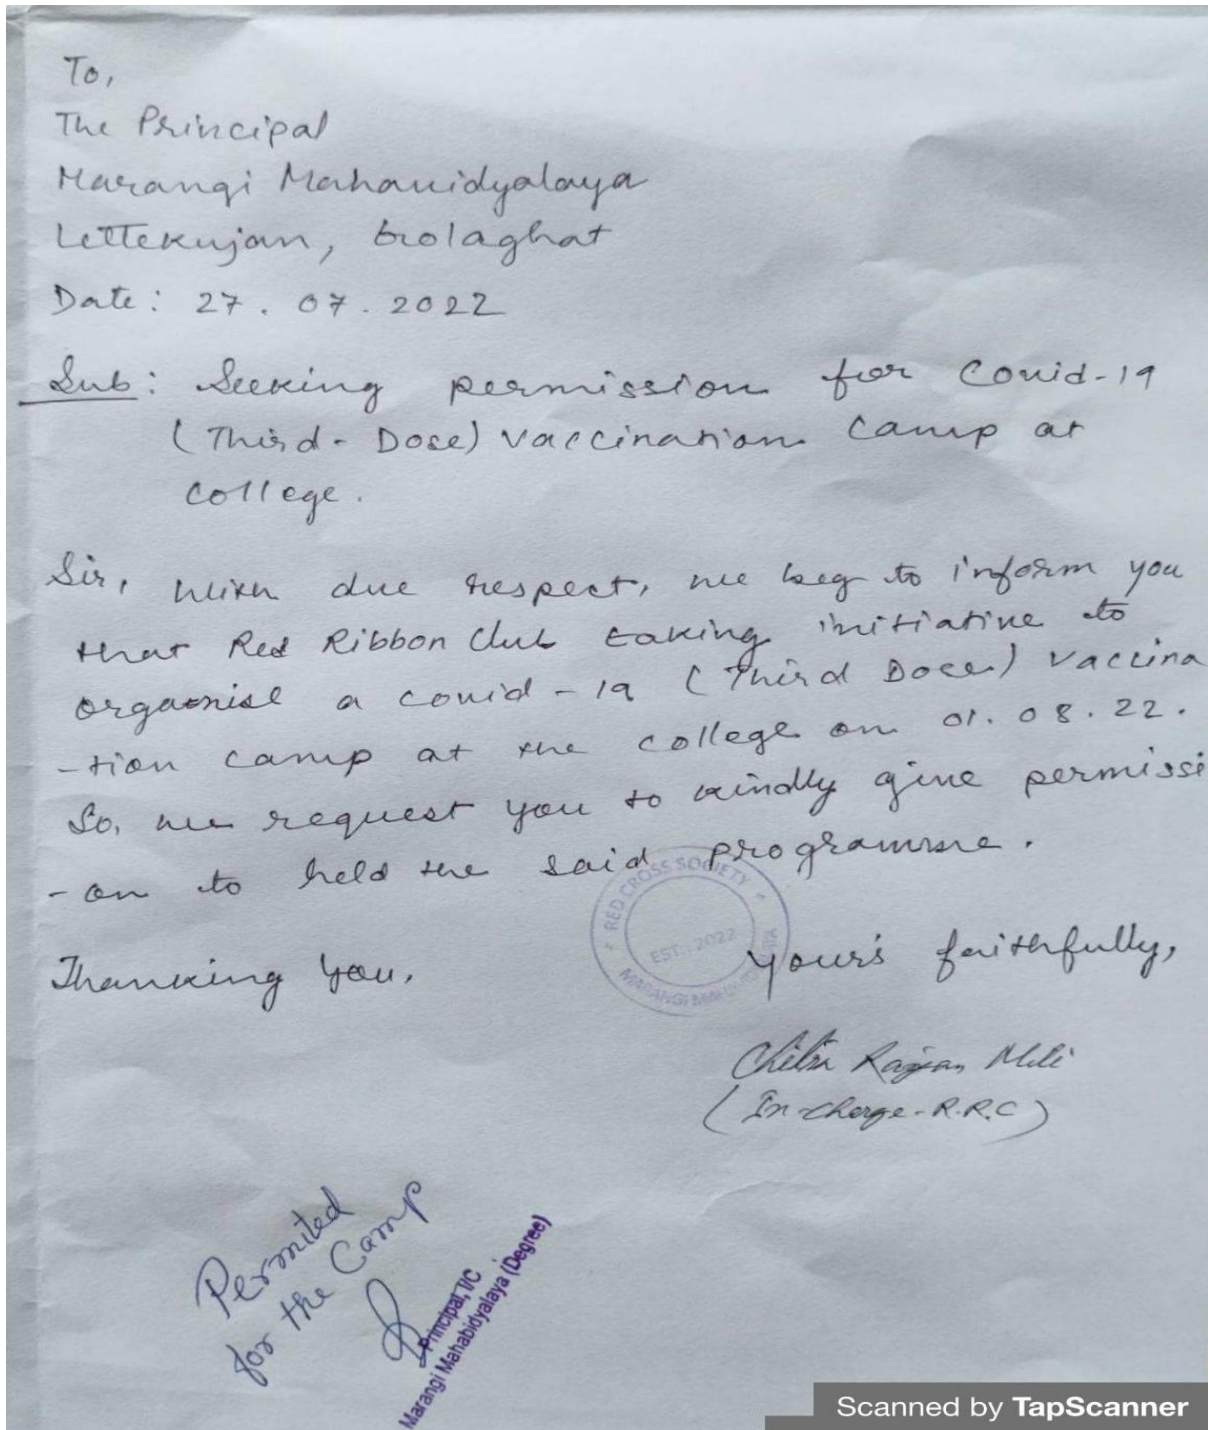 To,
The Principal
Marangi Mahavidyalaya
Lettekujan, Golaghat
Date: 27.07.2022
Sub: Seeking permission for Covid-19
(Third-Dose) vaccination camp at
college.
Sir, With due respect, we beg to inform you
that Red Ribbon Club taking initiative to
organise a covid-19 (Third Doce) vaccina
-tion camp at the college on 01.08.22.
So, we request you to kindly give permissi
-on to held the said programme.
RED CROSS SOCIETY
EST:. 2022
MARANGI
Thanking You.
Your's faithfully,
Chitra Ranjan Mili
(In-charge-R.R.C)
Permited
for the Camp
Principal, I/C
Marangi Mahabidyalaya (Degree)
Scanned by TapScanner